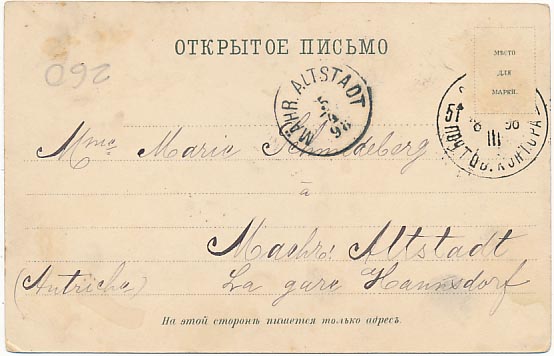 ОТКРЫТОЕ ПИСЬМО
МѢСТО
ДЛЯ
МАРКИ.
260
MÄHR. ALTSTADT
98
51 ПОЧТОВ. КОНТОРА
III
Mme Marie Schmedeberg
à
Maehr: Altstadt
(Autriche) La gare Hannsdorf
На этой сторонѣ пишется только адресъ.